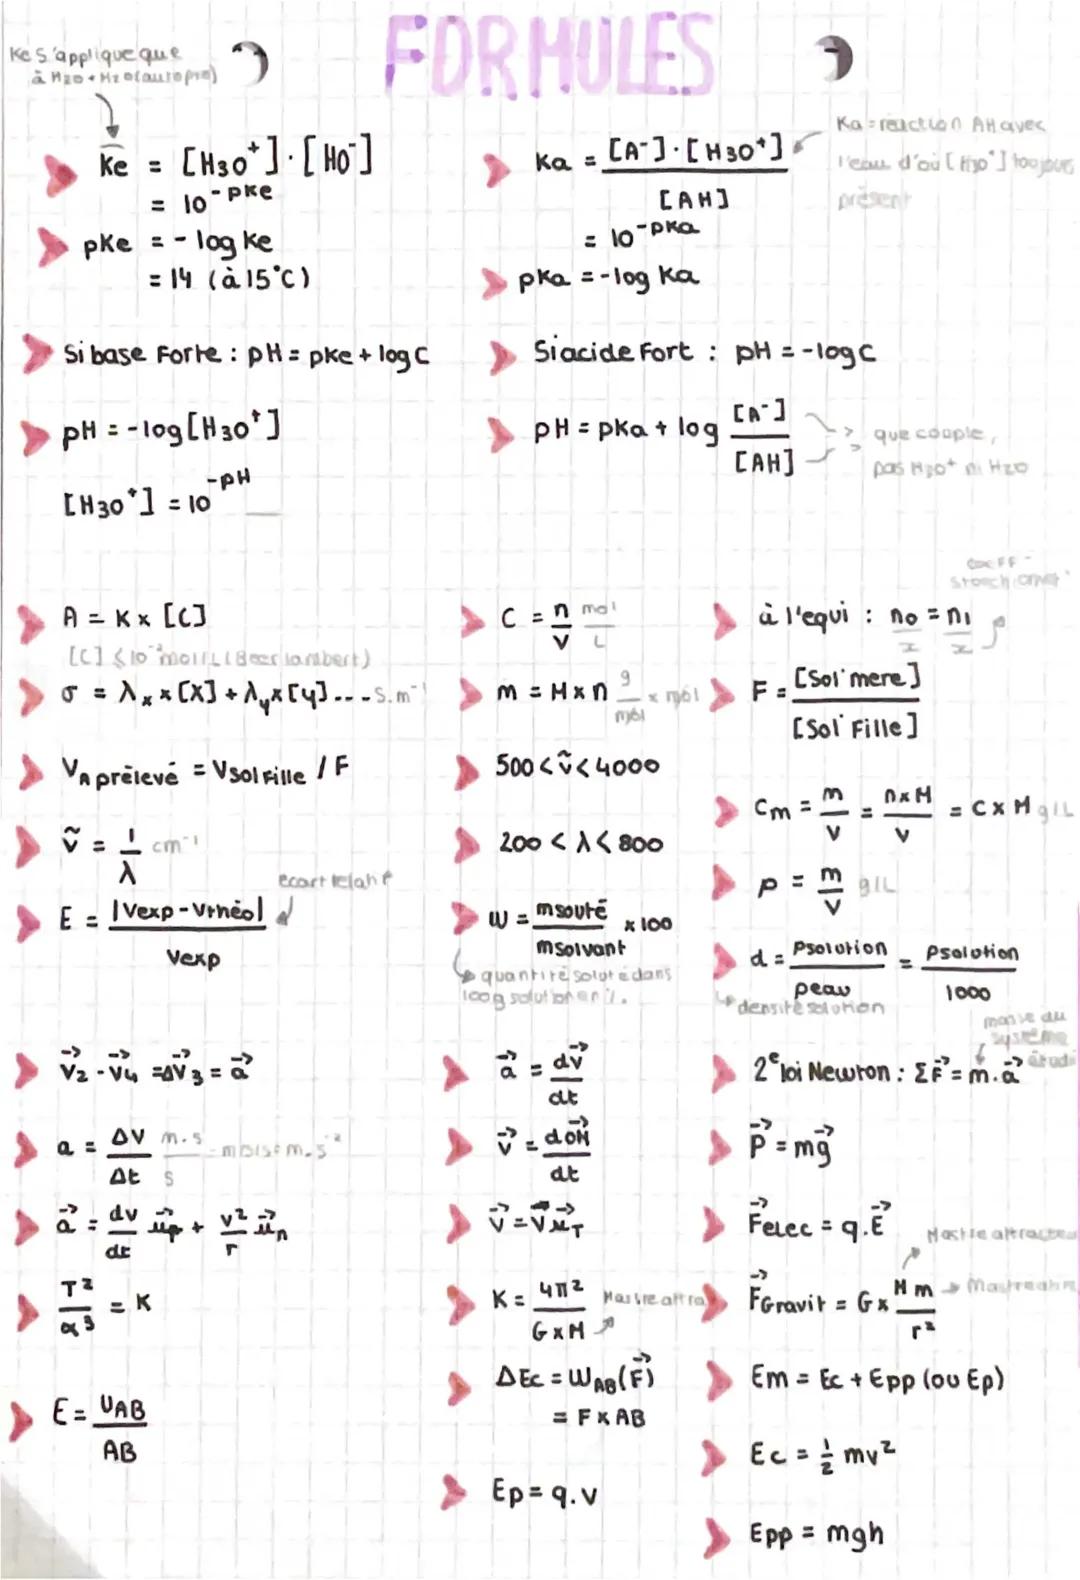 FORMULES
Ke s'applique que
à H2O + H2O (autopro)
Ke = [H3O⁺]·[HO⁻]
= 10^-pKe
pKe = - log Ke
= 14 (à 15°C)
Ka = [A⁻]·[H3O⁺] / [AH]
= 10^-pKa
pKa = - log Ka
Ka = réaction AH avec
l'eau d'où [H3O⁺] toujours
présent
Si base Forte : pH = pKe + log C
Si acide Fort : pH = - log C
pH = - log [H3O⁺]
[H3O⁺] = 10^-pH
pH = pKa + log [A⁻] / [AH]
que couple,
pas H3O⁺ ni H2O
A = K x [C]
[C] ≤ 10⁻² mol/L (Beer lambert)
σ = λx x [X] + λy x [Y] ... S.m⁻¹
VA prélevé = Vsol fille / F
ṽ = 1 / λ cm⁻¹
E = |Vexp - Vthéo| / Vexp
écart relatif
C = n / V mol / L
m = M x n g / mol x mol
500 < ṽ < 4000
200 < λ < 800
W = msouté / msolvant x 100
quantité soluté dans
100g solution en %.
coeff
à l'equi : n0 / x = n1 / x
F = [Sol° mere] / [Sol° Fille]
Cm = m / V = n x M / V = C x M g/L
ρ = m / V g/L
d = ρsolution / ρeau = ρsolution / 1000
densité solution
V⃗2 - V⃗4 = ΔV⃗3 = a⃗
a = ΔV / Δt m.s / s
a⃗ = dv / dt + v² / r u⃗n
T² / α³ = K
E = UAB / AB
a⃗ = dv⃗ / dt
v⃗ = dOM⃗ / dt
v⃗ = V u⃗T
K = 4π² / G x M
ΔEc = WAB(F⃗)
= F x AB
Ep = q.v
masse du
système
étudié
2e loi Newton : ΣF⃗ = m.a⃗
P⃗ = mg⃗
F⃗elec = q.E⃗
F⃗Gravit = G x M m / r²
Em = Ec + Epp (ou Ep)
Ec = 1/2 mv²
Epp = mgh